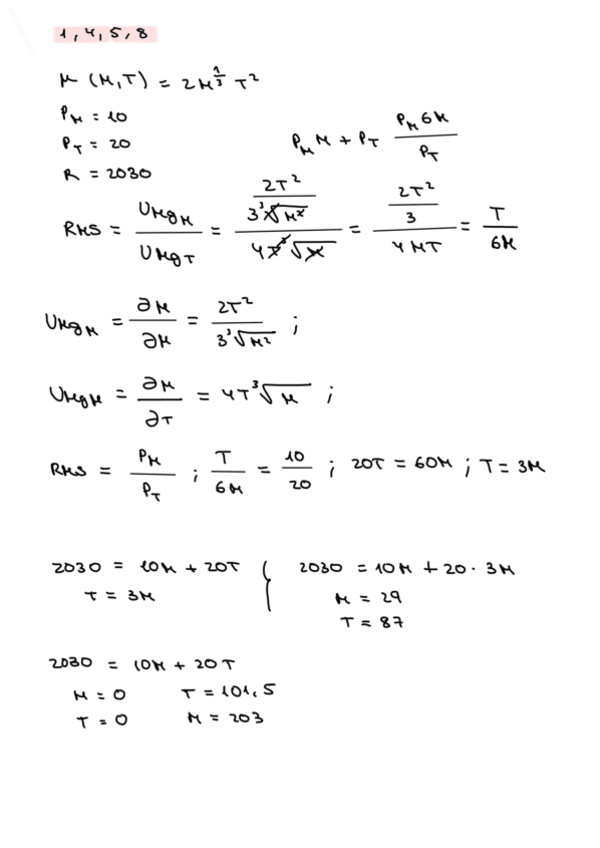 1, 4, 5, 8
μ (M,T) = 2M^{1/3} T²
P_M = 10
P_T = 20
P_M M + P_T \frac{P_M 6M}{P_T}
R = 2030
RMS = \frac{UMg_M}{UMg_T} = \frac{\frac{2T²}{3∛M²}}{4T∛M} = \frac{\frac{2T²}{3}}{4MT} = \frac{T}{6M}
UMg_M = \frac{∂M}{∂M} = \frac{2T²}{3∛M²} ;
UMg_M = \frac{∂M}{∂T} = 4T∛M ;
RMS = \frac{P_M}{P_T} ; \frac{T}{6M} = \frac{10}{20} ; 20T = 60M ; T = 3M
2030 = 10M + 20T { 2030 = 10M + 20 · 3M
T = 3M M = 29
T = 87
2030 = 10M + 20T
M = 0 T = 101,5
T = 0 M = 203